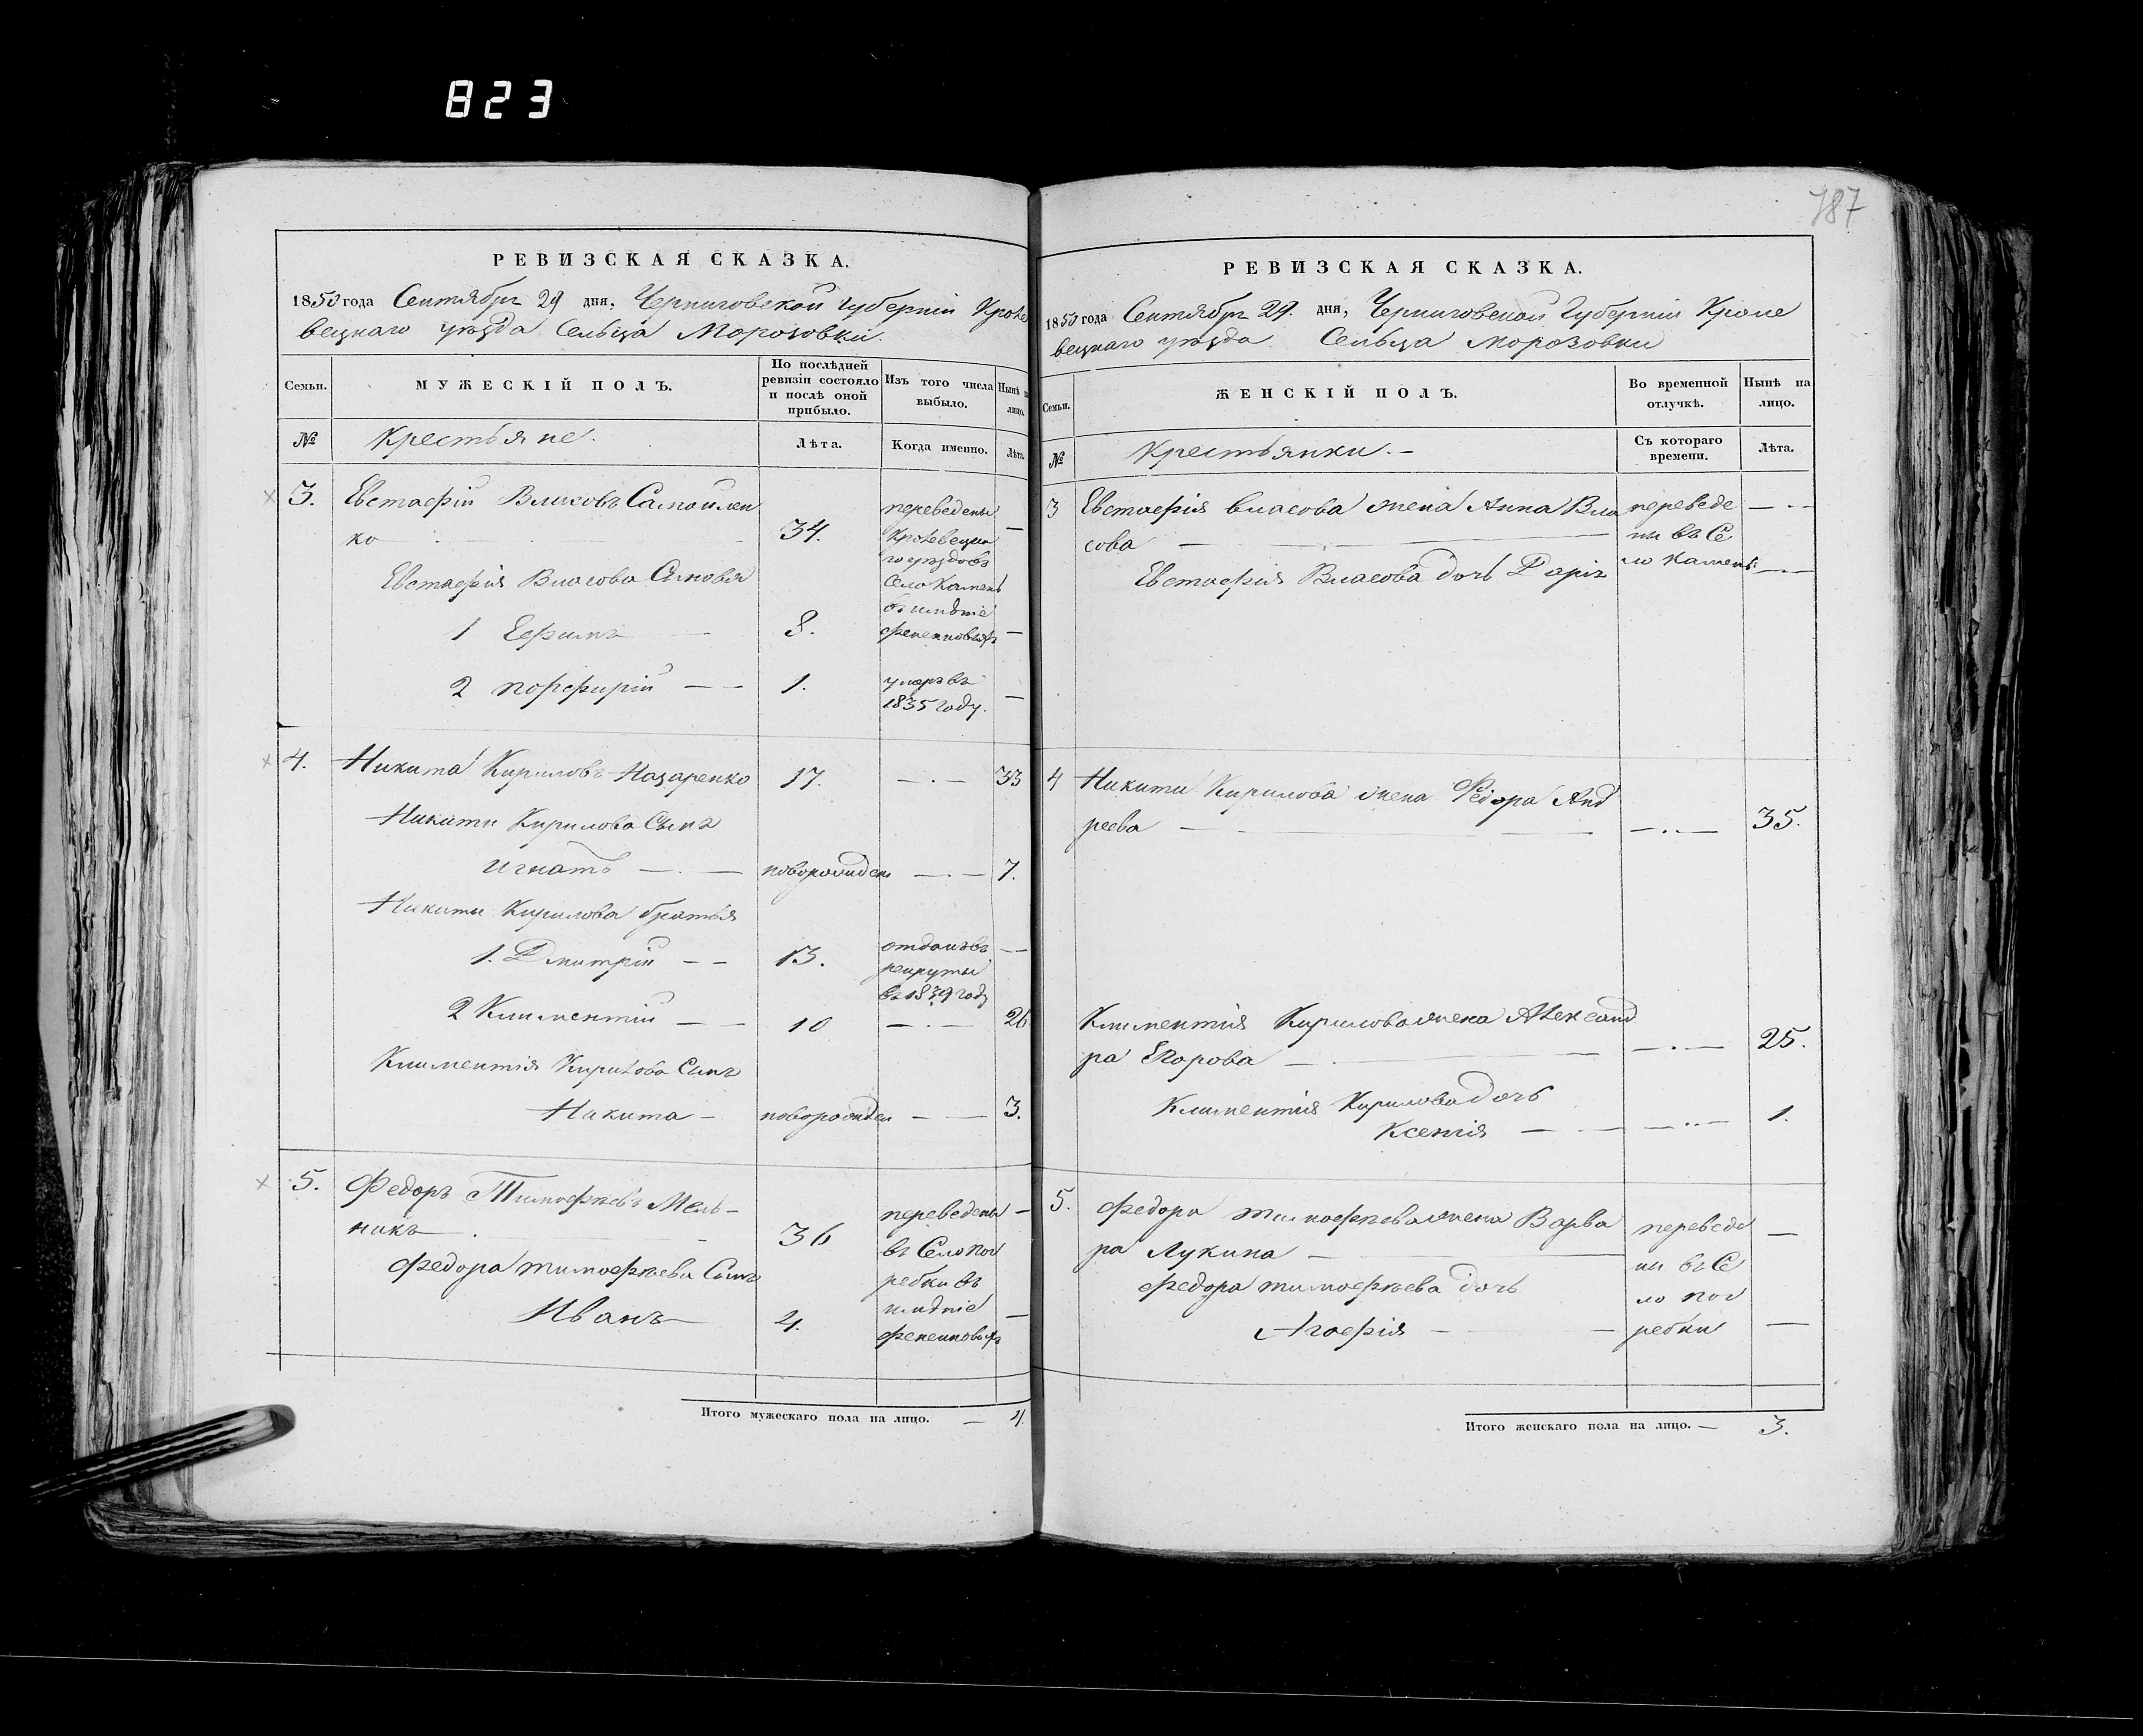 823
787
РЕВИЗСКАЯ СКАЗКА.
1850 года Сентября 29 дня, Черниговской Губерніи Кроле
вецкаго уѣзда Сельца Морозовки.
Семьи.
МУЖЕСКІЙ ПОЛЪ.
По послѣдней ревизіи состояло и послѣ оной прибыло.
Изъ того числа выбыло.
Нынѣ на лицо.
№
Крестьяне.
Лѣта.
Когда именно.
Лѣта.
3. Евстафій Власовъ Самойлен
ко 34.
переведены
Кролевецка
го уѣзда въ
Село Камень
въ имѣніе
Евстафія Власова Сыновья
1 Ефимъ — 8. —
2 порфирій — — 1.
умеръ въ
1835 году. —
4. Никита Кириловъ Назаренко 17. — . — 33
Никиты Кирилова Сынъ
Игнатъ — . — новорожден — . — 7.
Никиты Кирилова братья
1. Дмитрій — — 13.
отданъ въ
рекруты
въ 1839 году —
2 Климентій — — 10 — . — 26
Климентія Кирилова Сынъ
Никита — новорожден — — 3.
5. Федоръ Тимофѣевъ Мель-
никъ 36
переведены —
въ Село пог
ребки въ
имѣніе
Федора тимофѣева Сынъ
Иванъ — 4. —
Итого мужескаго пола на лицо. — 4.
РЕВИЗСКАЯ СКАЗКА.
1850 года Сентября 29. дня, Черниговской Губерніи Кроле
вецкаго уѣзда Сельца Морозовки
Семьи.
ЖЕНСКІЙ ПОЛЪ.
Во временной отлучкѣ.
Нынѣ на лицо.
№
Крестьянки. —
Съ котораго времени.
Лѣта.
3 Евстафія власова жена Анна Вла
сова —
переведе
ны въ Се
ло Камень
Евстафія Власова дочь Дарія
4 Никиты Кирилова жена Федора Анд
реева — — . . — 35.
Климентія Кирилова жена Александ
ра Егорова — — . — 25.
Климентія Кирилова дочь
Ксенія — — . . — 1.
5. федора тимофѣева жена Варва
ра Лукина —
переведе
ны въ Се
ло пог
ребки
федора тимофѣева дочь
Агафія — —
Итого женскаго пола на лицо. — 3.